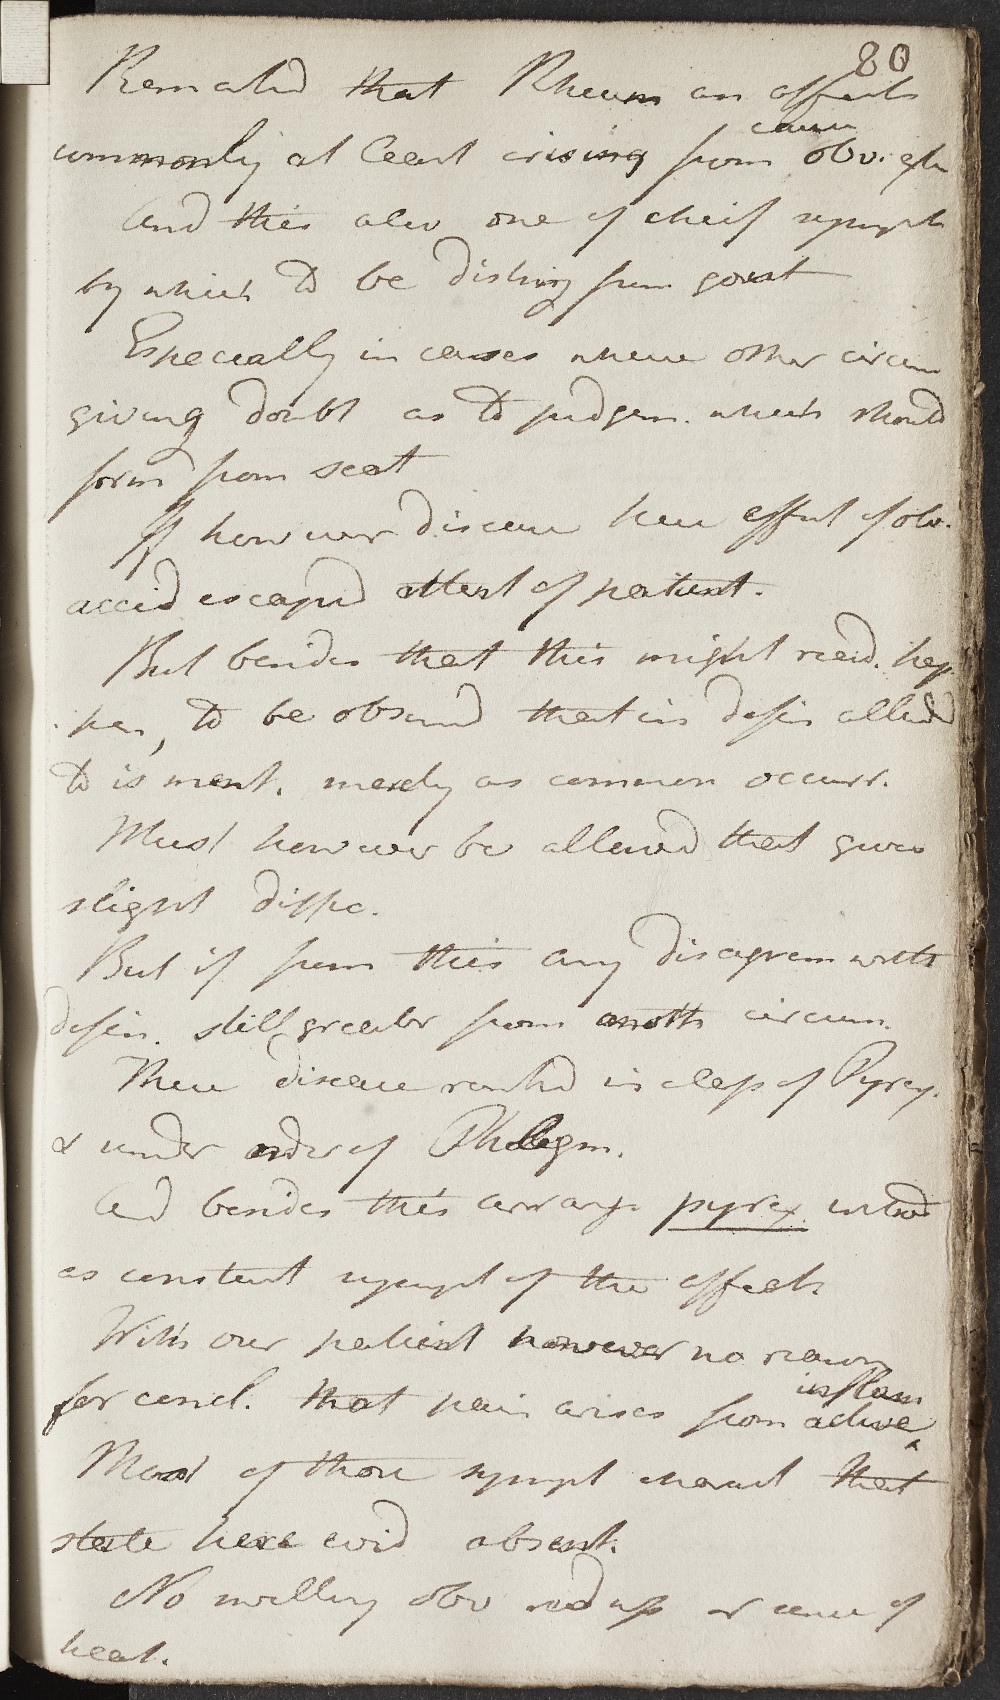 80
Remarked that Rheum an affect
cause
commonly at least arising from obv. ext
And this also one of cheif sympt
by which to be disting from gout
Especially in cases where other circum
giving doubt as to judgem. which should
form from seat
If however disease here effect of obv.
accid escaped attent of patient.
But besides that this might readi. hap
pen, to be observd that in defin alluded
to is ment. merely as common occurr.
Must however be allowed that gives
slight diffic.
But if from this any disagreem with
defin. still greater from anoth circum.
There disease ranked in class of Pyrex.
& under order of Phlegm.
And besides this arrang. pyrex. introd
as constant sympt of the affect
With our patient however no reason
inflam
for concl. that pain arises from active
Most of those sympt charact that
state here evid absent.
No swelling obv redness or sense of
heat.